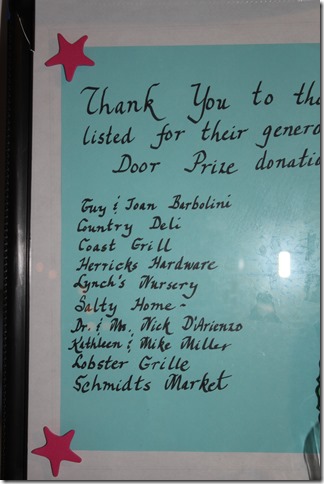 Thank You to tho
listed for their genero
Door Prize donatio
Guy & Joan Barbolini
Country Deli
Coast Grill
Herricks Hardware
Lynch's Nursery
Salty Home -
Dr & Mrs. Nick D'Arienzo
Kathleen & Mike Miller
Lobster Grille
Schmidts Market